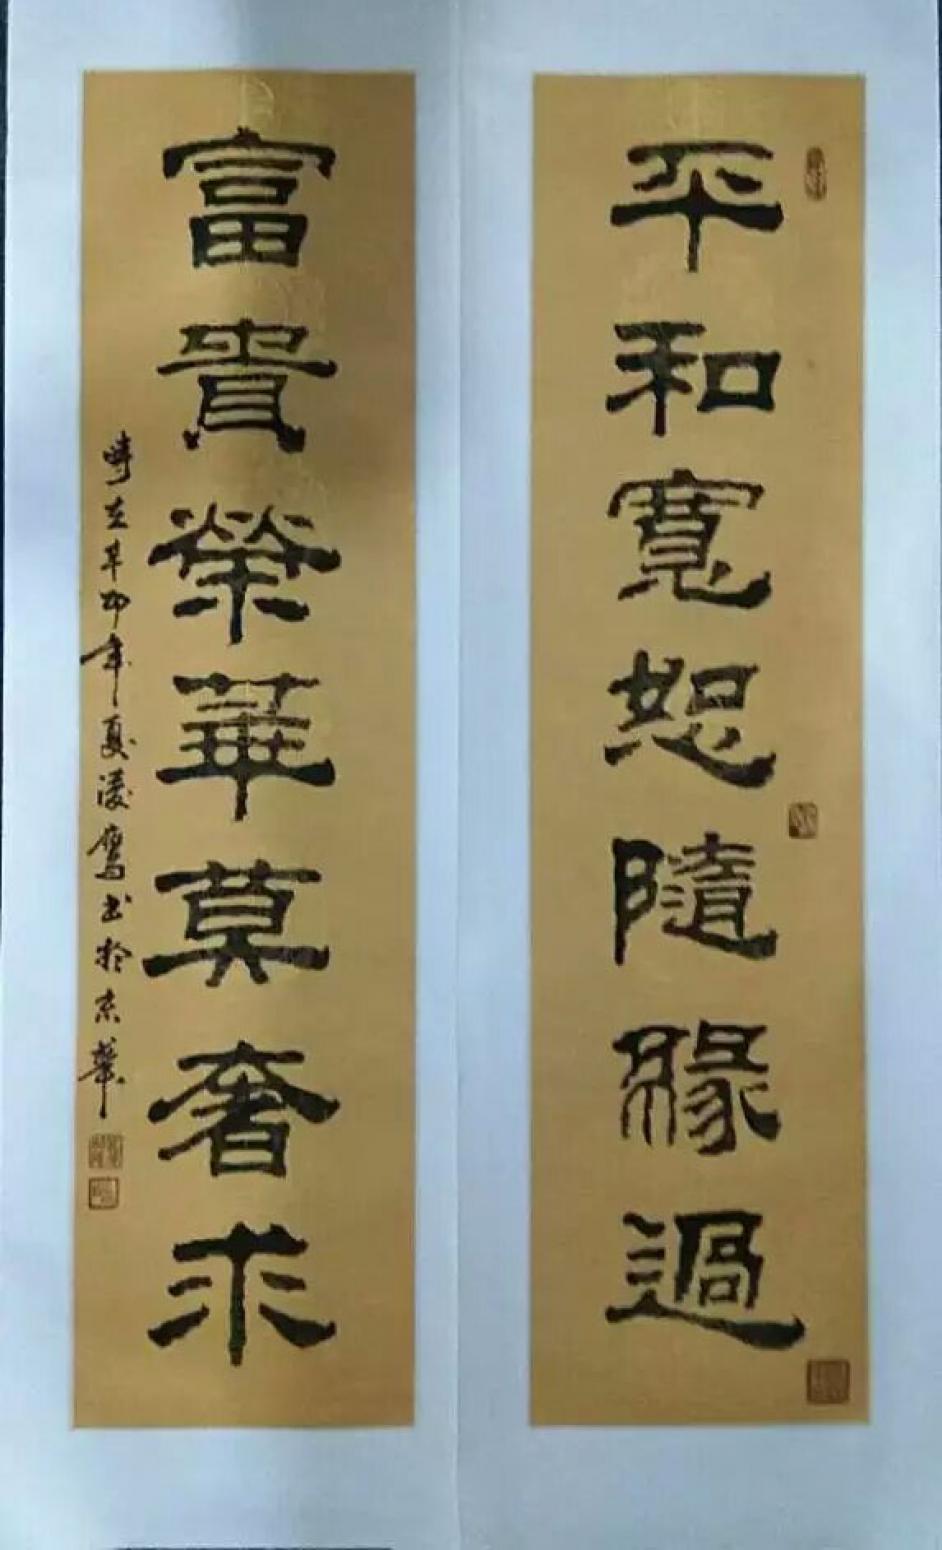 平和寬恕隨緣過
富貴榮華莫奢求
時在辛卯年夏淩鹰书於京華